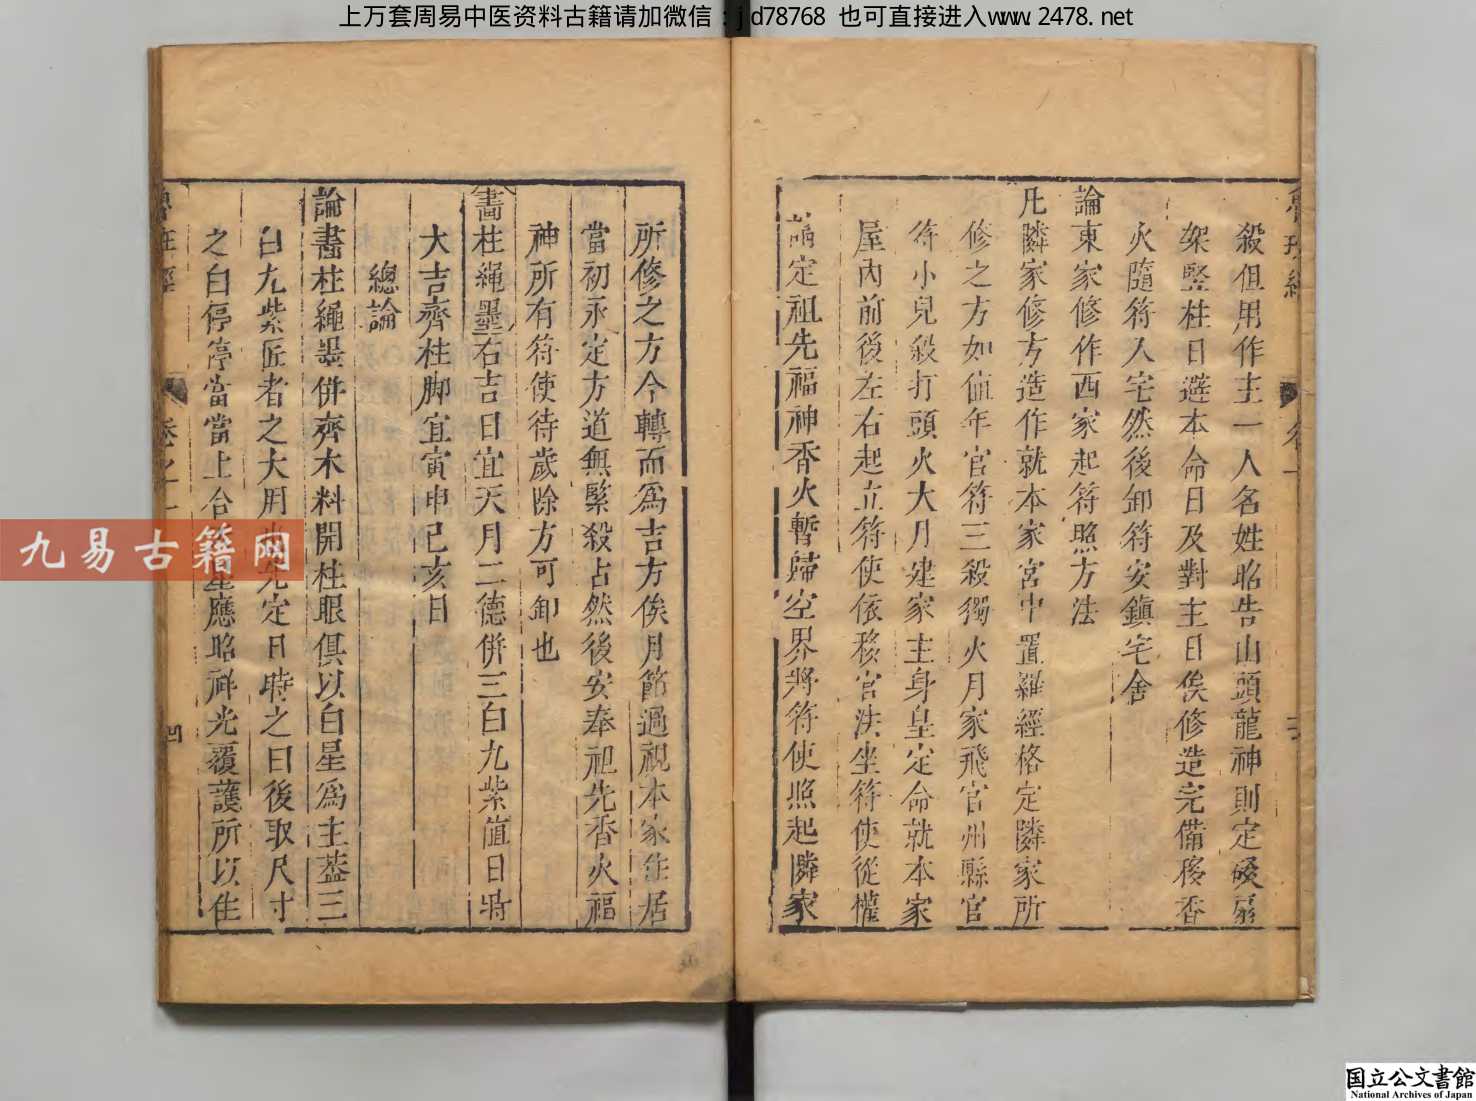 上万套周易中医资料古籍请加微信：jd78768 也可直接进入www.2478.net
殺但用作主一人名姓昭告山頭龍神則定磉扇
架竪柱日選本命日及對主日俟修造完備移香
火隨符入宅然後卸符安鎮宅舍
論東家修作西家起符照方法
凡隣家修方造作就本家宮中置羅經格定隣家所
修之方如値年官符三殺獨火月家飛宮州縣官
符小兒殺打頭火大月建家主身皇定命就本家
屋內前後左右起立符使依移宮法坐符使從權
請定祖先福神香火暫歸空界將符使照起隣家
所修之方令轉而爲吉方俟月節過視本家住居
當初永定方道無緊殺占然後安奉祖先香火福
神所有符使待歲除方可卸也
畫柱繩墨右吉日宜天月二德併三白九紫値日時
大吉齊柱脚宜寅申巳亥日
總論
論畫柱繩墨併齊木料開柱眼俱以白星爲主蓋三
白九紫匠者之大用也先定日時之白後取尺寸
之白停停當當上合星應昭祥光覆護所以住
魯班經
卷之一
九易古籍网
国立公文書館
National Archives of Japan